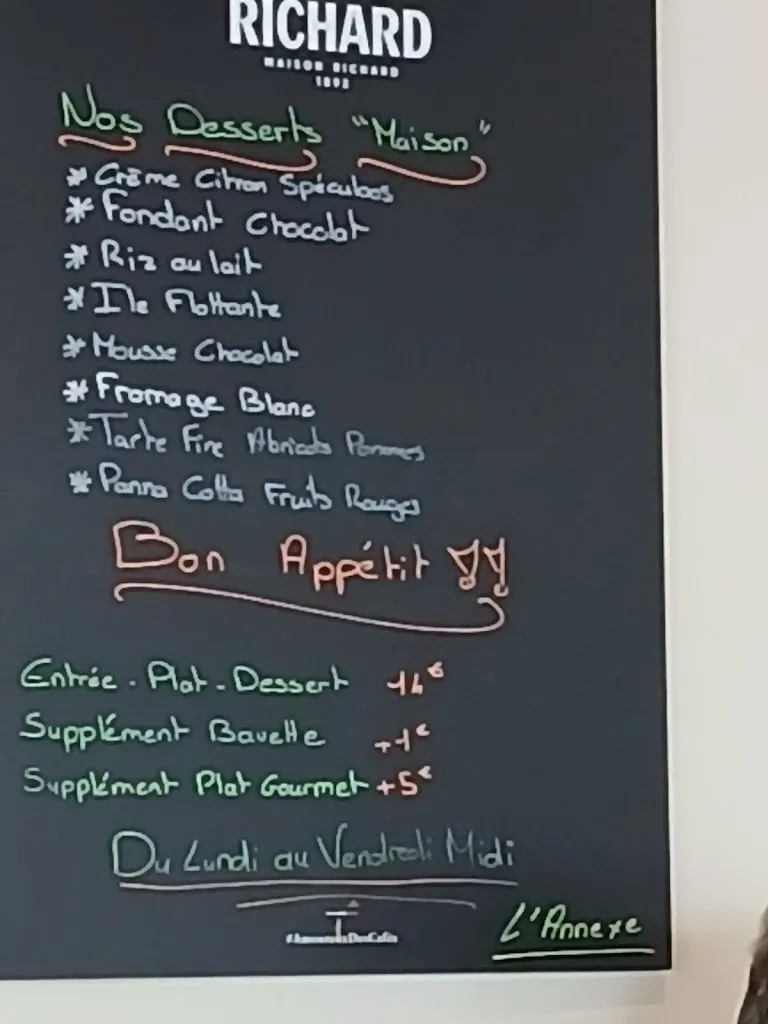 RICHARD
MAISON RICHARD
1892
Nos Desserts "Maison"
* Crème Citron Spéculoos
* Fondant Chocolat
* Riz au lait
* Ile Flottante
* Mousse Chocolat
* Fromage Blanc
* Tarte Fine Abricots Pommes
* Panna Cotta Fruits Rouges
Bon Appétit !!
Entrée - Plat - Dessert 14€
Supplément Bavette +1€
Supplément Plat Gourmet +5€
Du Lundi au Vendredi Midi
#AmoureuxDesCafés
L'Annexe